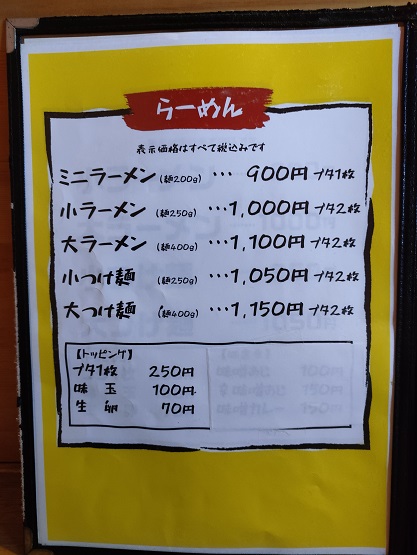 らーめん
表示価格はすべて税込みです
ミニラーメン (麺200g) … 900円 ブタ1枚
小ラーメン (麺250g) …1,000円 ブタ2枚
大ラーメン (麺400g) …1,100円 ブタ2枚
小つけ麺 (麺250g) …1,050円 ブタ2枚
大つけ麺 (麺400g) …1,150円 ブタ2枚
【トッピング】
ブタ1枚 250円
味玉 100円
生卵 70円